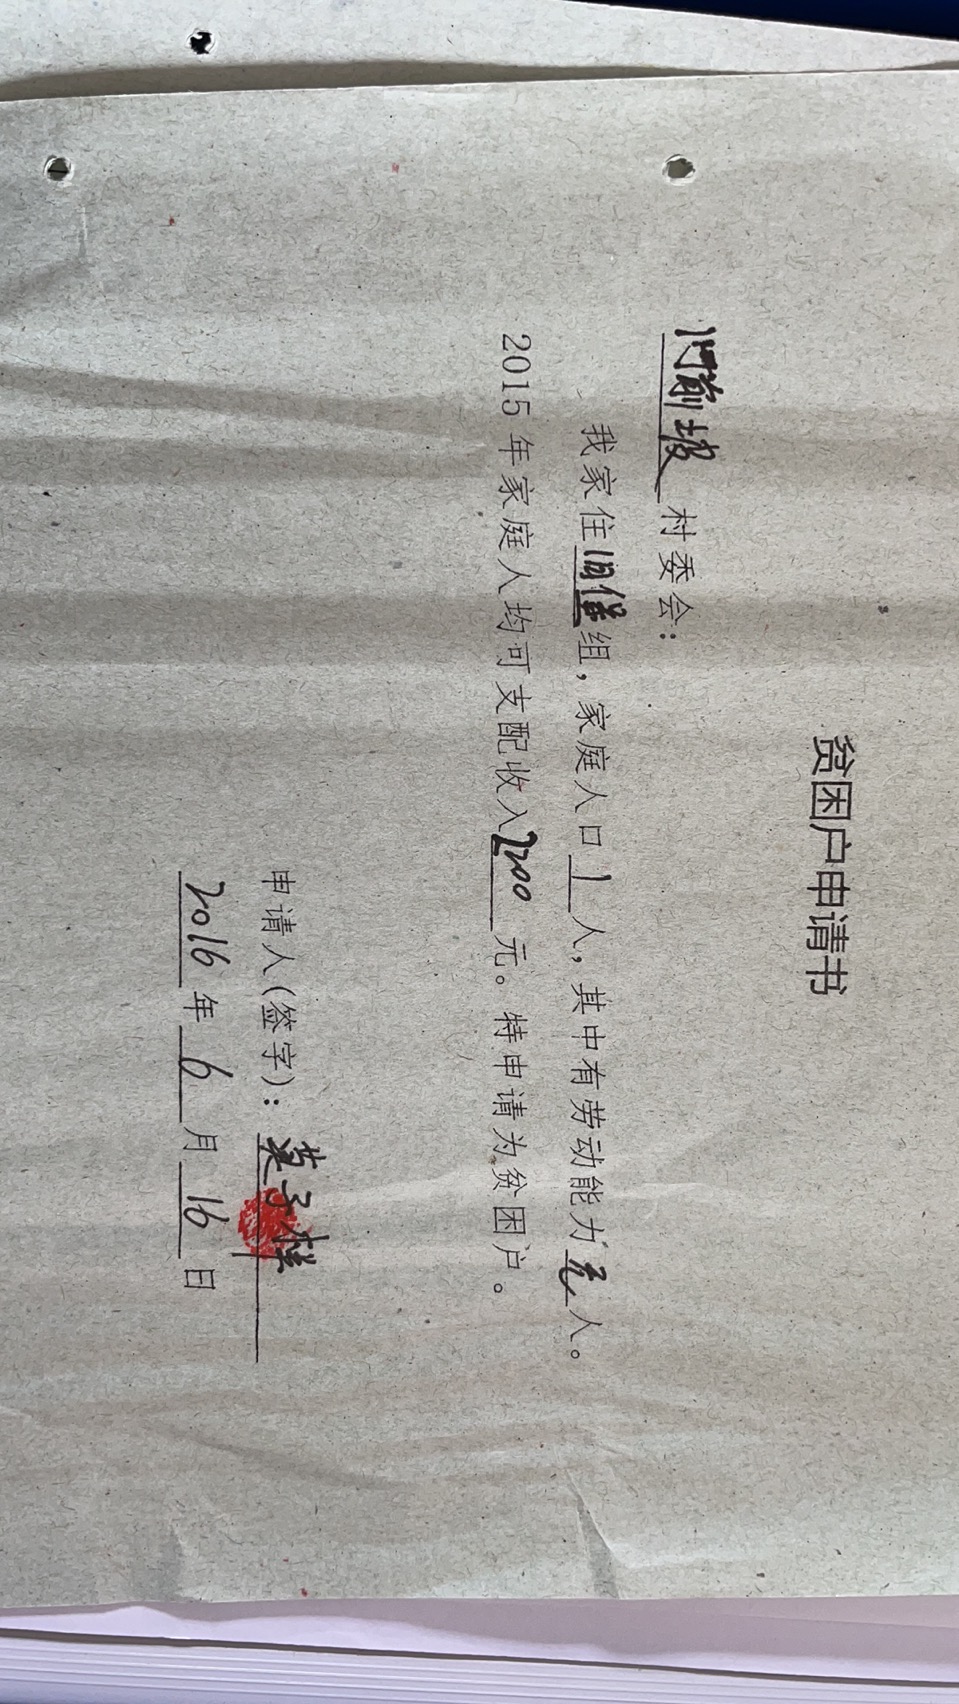 贫困户申请书
河前坡村委会：
我家住旧堡组，家庭人口1人，其中有劳动能力无人。
2015年家庭人均可支配收入2200元。特申请为贫困户。
申请人（签字）：黄子祥
2016年6月16日